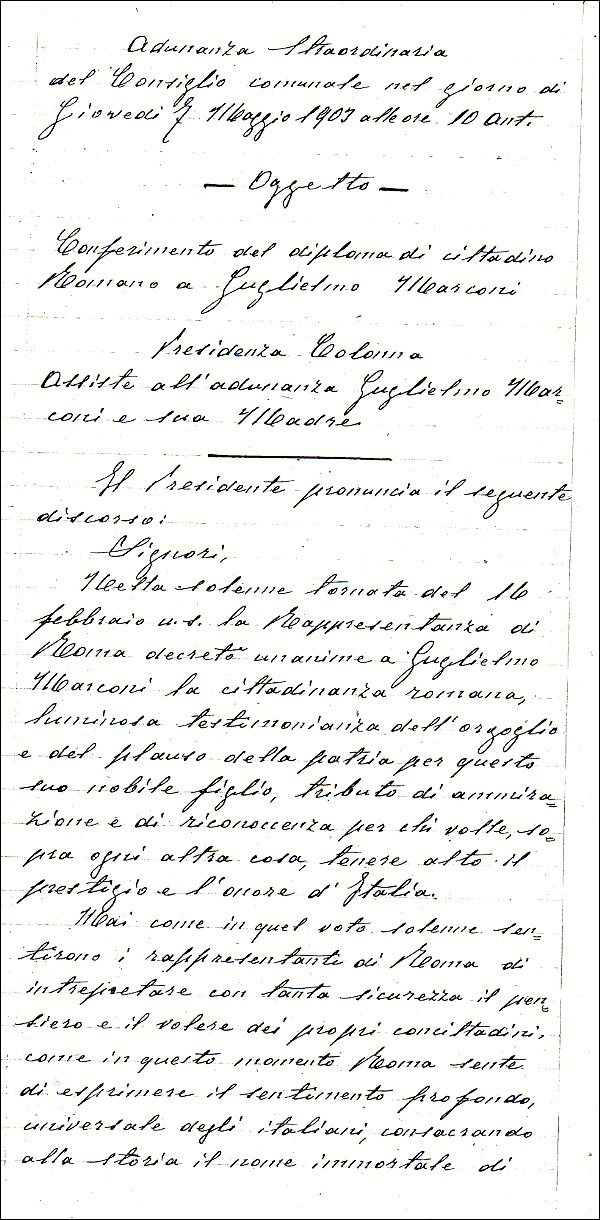 Adunanza Straordinaria
del Consiglio comunale nel giorno di
Giovedi 7 Maggio 1903 alle ore 10 Ant.
— Oggetto —
Conferimento del diploma di cittadino
Romano a Guglielmo Marconi
Presidenza Colonna
Assiste all'adunanza Guglielmo Mar=
coni e sua Madre
Il Presidente pronuncia il seguente
discorso:
Signori,
Nella solenne tornata del 16
febbraio u.s. la Rappresentanza di
Roma decretò unanime a Guglielmo
Marconi la cittadinanza romana,
luminosa testimonianza dell'orgoglio
e del plauso della patria per questo
suo nobile figlio, tributo di ammira=
zione e di riconoscenza per chi volle, so=
pra ogni altra cosa, tenere alto il
prestigio e l'onore d'Italia.
Mai come in quel voto solenne sen=
tirono i rappresentanti di Roma di
intrepretare con tanta sicurezza il pen=
siero e il volere dei propri concittadini,
come in questo momento Roma sente
di esprimere il sentimento profondo,
universale degli italiani, consacrando
alla storia il nome immortale di